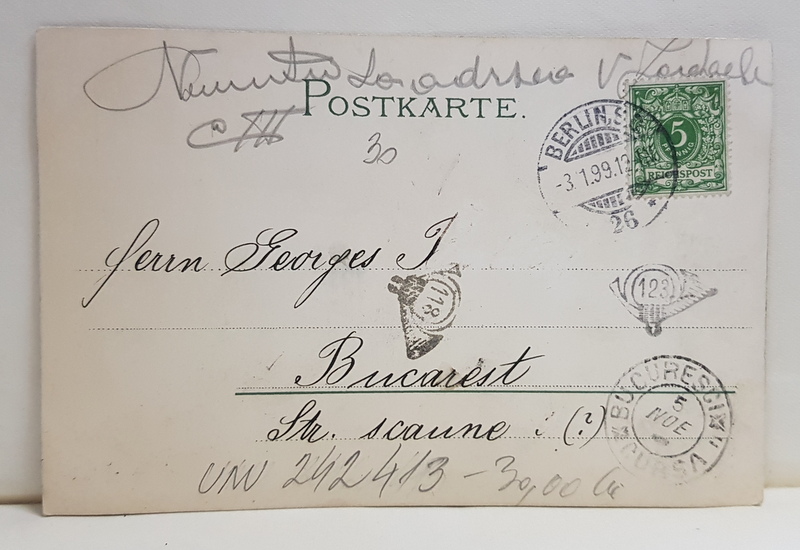 POSTKARTE.
30
BERLIN, S.
-3.1.99.12-1N.
26
5
PFENNIG
REICHSPOST
Herrn Georges I
118
123
Bucarest
BUCURESCI
5
NOE
CURSA
Str. scaune . (?)
UNV 242413 - 30,00 lei